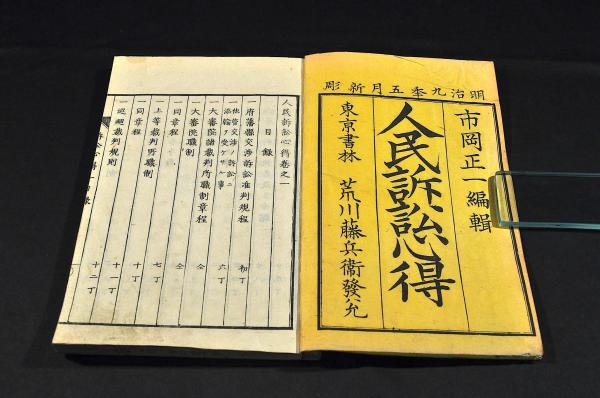 明治九年五月新彫
市岡正一編輯
人民訴訟心得
東京書林 荒川藤兵衛發兌
人民訴訟心得卷之一
目録
一府藩縣交渉訴訟准判規程 初丁
一大審院諸裁判所職制章程 六丁
一大審院職制 仝
一同章程 仝
一上等裁判所職制 七丁
一同章程 十丁
一巡廻裁判規則 十一丁
十二丁